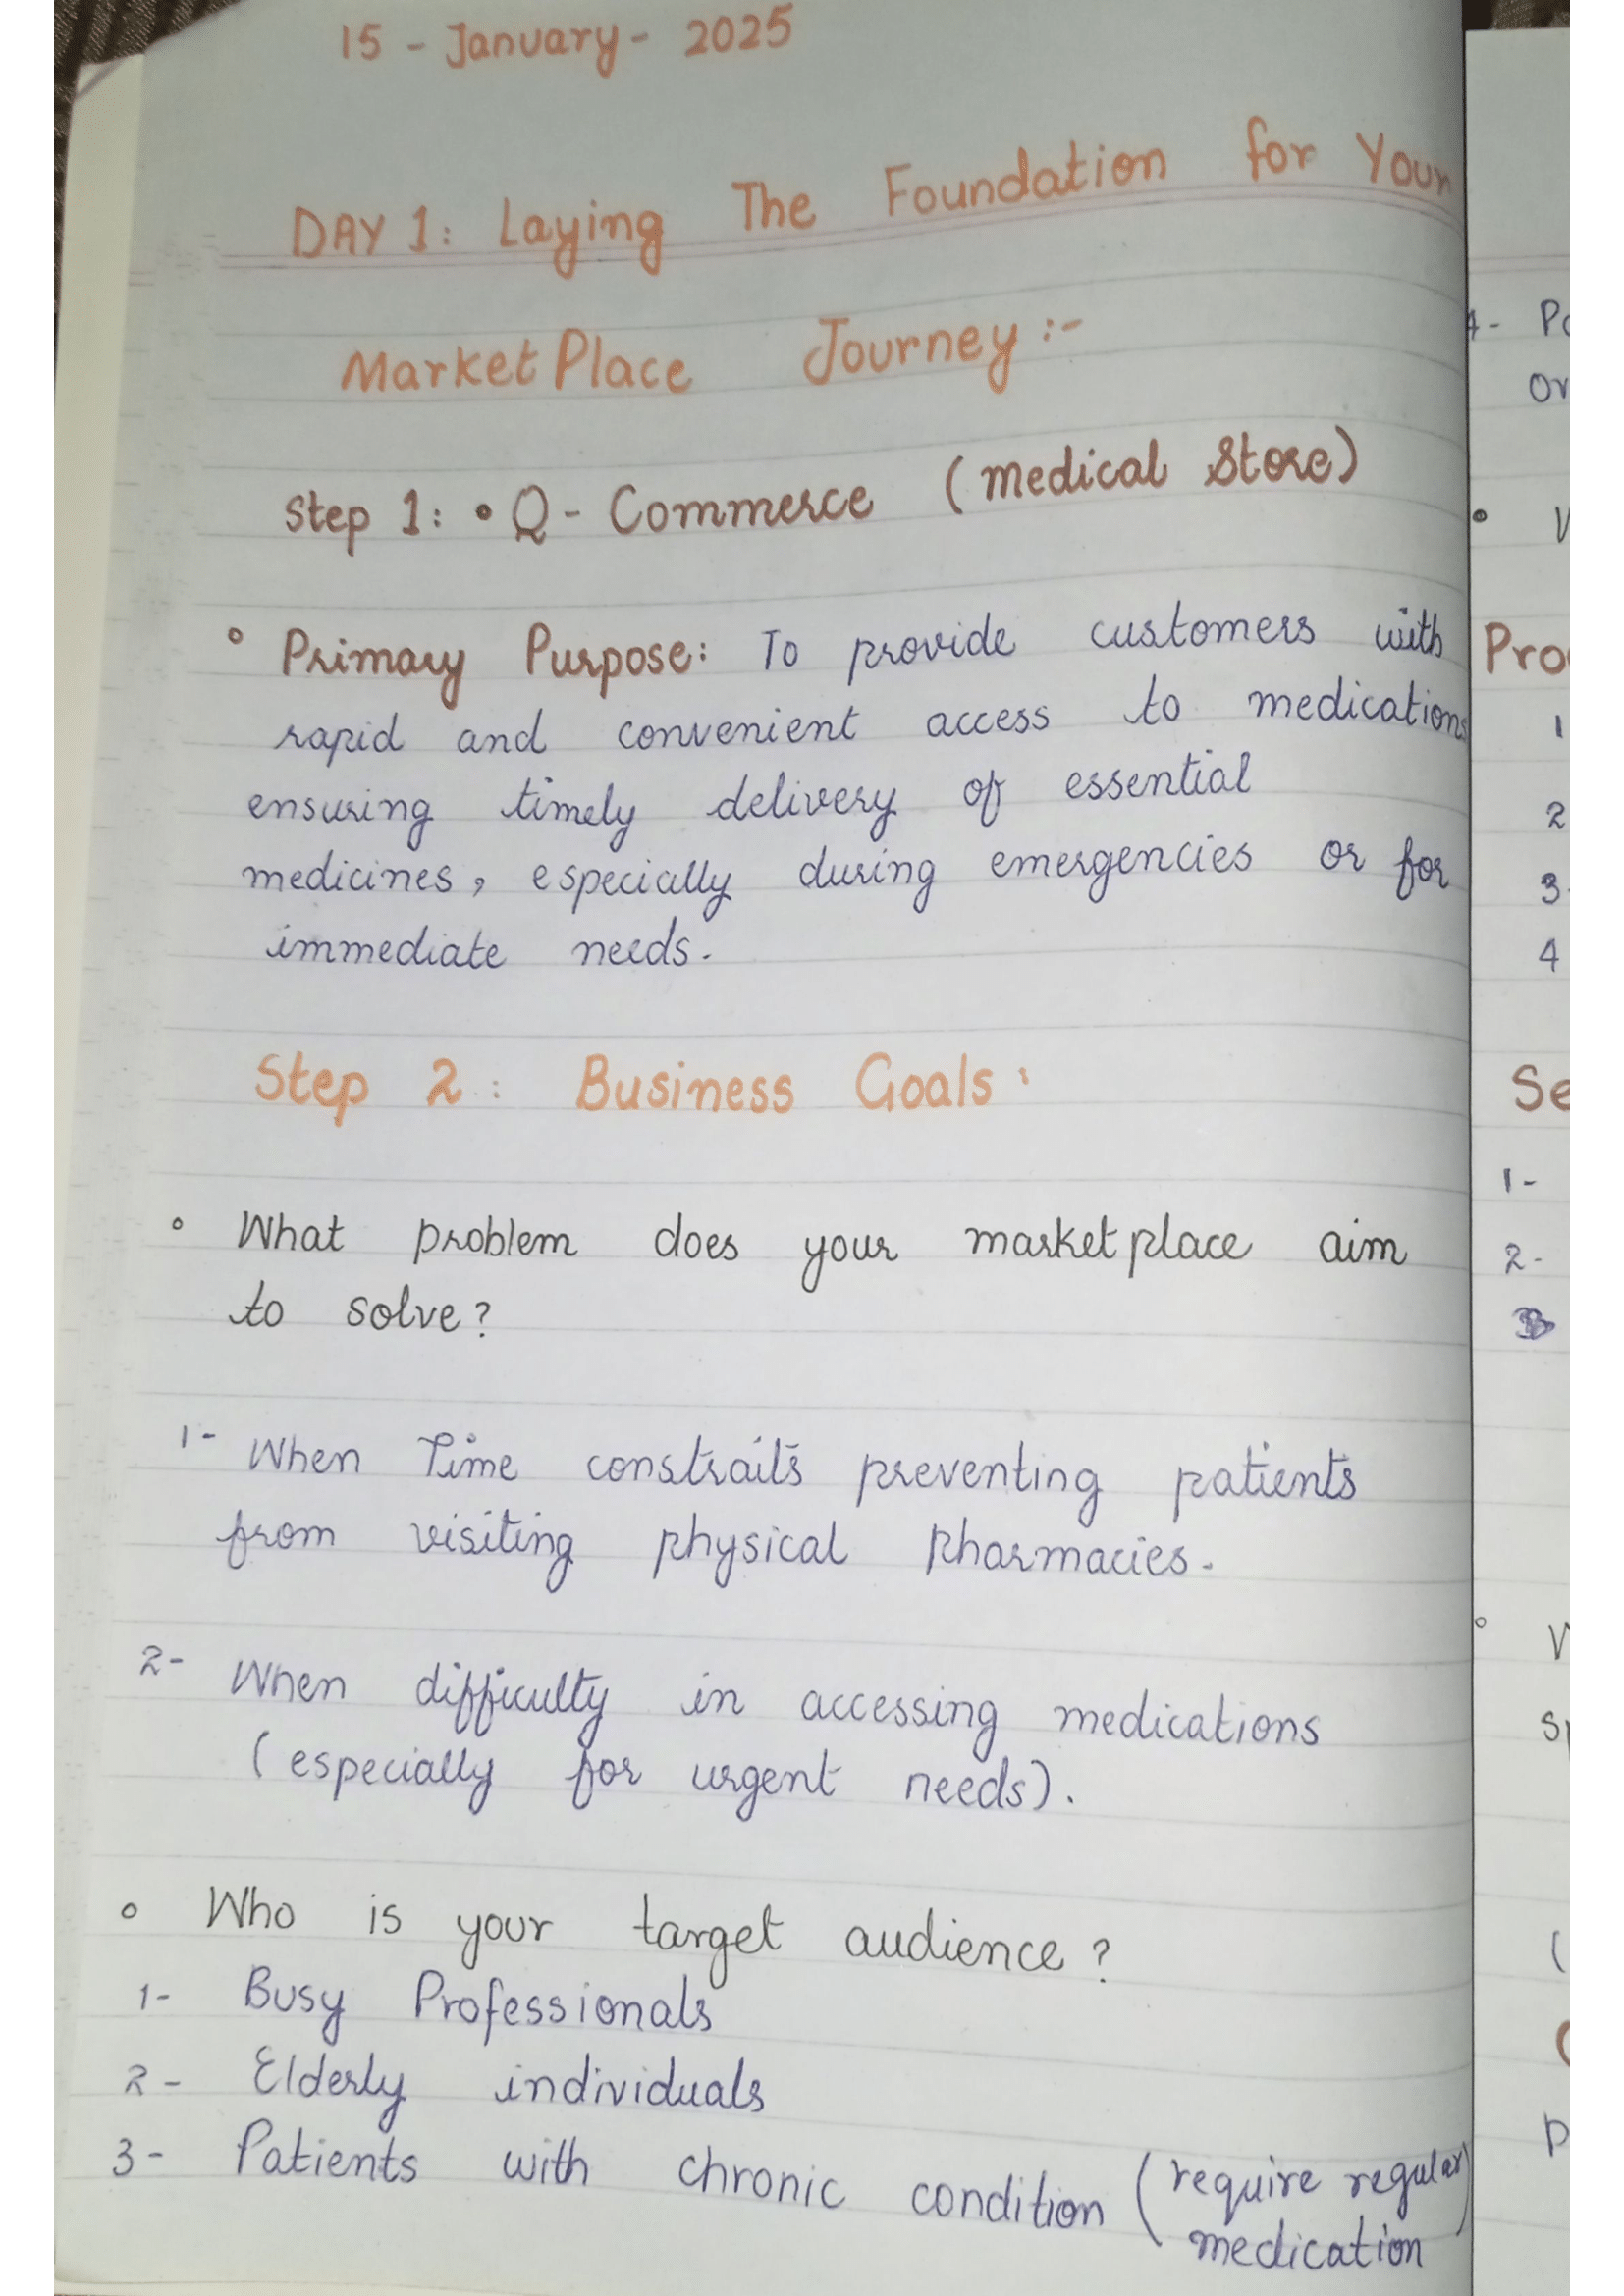 15 - January - 2025
DAY 1: Laying The Foundation for Your
MarketPlace Journey :-
Step 1: • Q - Commerce (medical Store)
° Primary Purpose: To provide customers with
rapid and convenient access to medications
ensuring timely delivery of essential
medicines, especially during emergencies or for
immediate needs.
Step 2: Business Goals:
° What problem does your marketplace aim
to solve?
1- When Time constraits preventing patients
from visiting physical Pharmacies.
2- When difficulty in accessing medications
(especially for urgent needs).
° Who is your target audience?
1- Busy Professionals
2- Elderly individuals
3- Patients with chronic condition (require regular)
medication
4-
or
Pro
1
2
3
4
Se
1-
2-